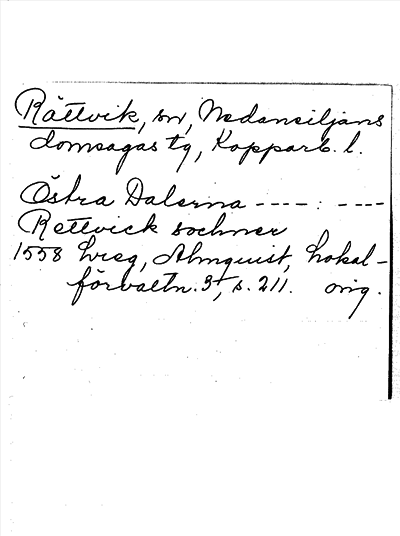 Rättvik, sn, Nedansiljans
domsagas tg, Kopparb. l.
Östra Dalerna ---- : ----
Rettvick sochner
1558 hreg, Almquist, Lokal-
förvaltn. 3, s. 211. orig.